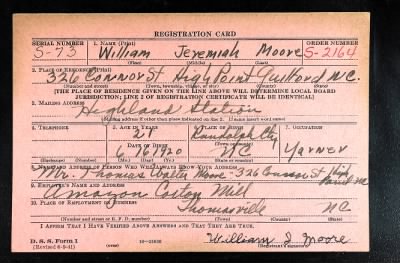 REGISTRATION CARD
SERIAL NUMBER 1. NAME (Print) ORDER NUMBER
S-73 William Jeremiah Moore S-2164
(First) (Middle) (Last)
2. PLACE OF RESIDENCE (Print)
326 Connor St High Point Guilford N.C.
(Number and street) (Town, township, village, or city) (County) (State)
[THE PLACE OF RESIDENCE GIVEN ON THE LINE ABOVE WILL DETERMINE LOCAL BOARD
JURISDICTION; LINE 2 OF REGISTRATION CERTIFICATE WILL BE IDENTICAL]
3. MAILING ADDRESS
Highland Station
[Mailing address if other than place indicated on line 2. If same insert word same]
4. TELEPHONE 5. AGE IN YEARS 6. PLACE OF BIRTH 7. OCCUPATION
21 Randolph
DATE OF BIRTH
6 16 1920 N.C.
(Exchange) (Number) (Mo.) (Day) (Yr.) (State or country)
8. NAME AND ADDRESS OF PERSON WHO WILL ALWAYS KNOW YOUR ADDRESS
Mr. Thomas Walter Moore - 326 Connor St High Point NC
9. EMPLOYER'S NAME AND ADDRESS
Amazon Cotton Mill
10. PLACE OF EMPLOYMENT OR BUSINESS
Thomasville N.C.
(Number and street or R. F. D. number) (Town) (County) (State)
I AFFIRM THAT I HAVE VERIFIED ABOVE ANSWERS AND THAT THEY ARE TRUE.
D. S. S. Form 1
(Revised 6-9-41) 16-21630 William J Moore